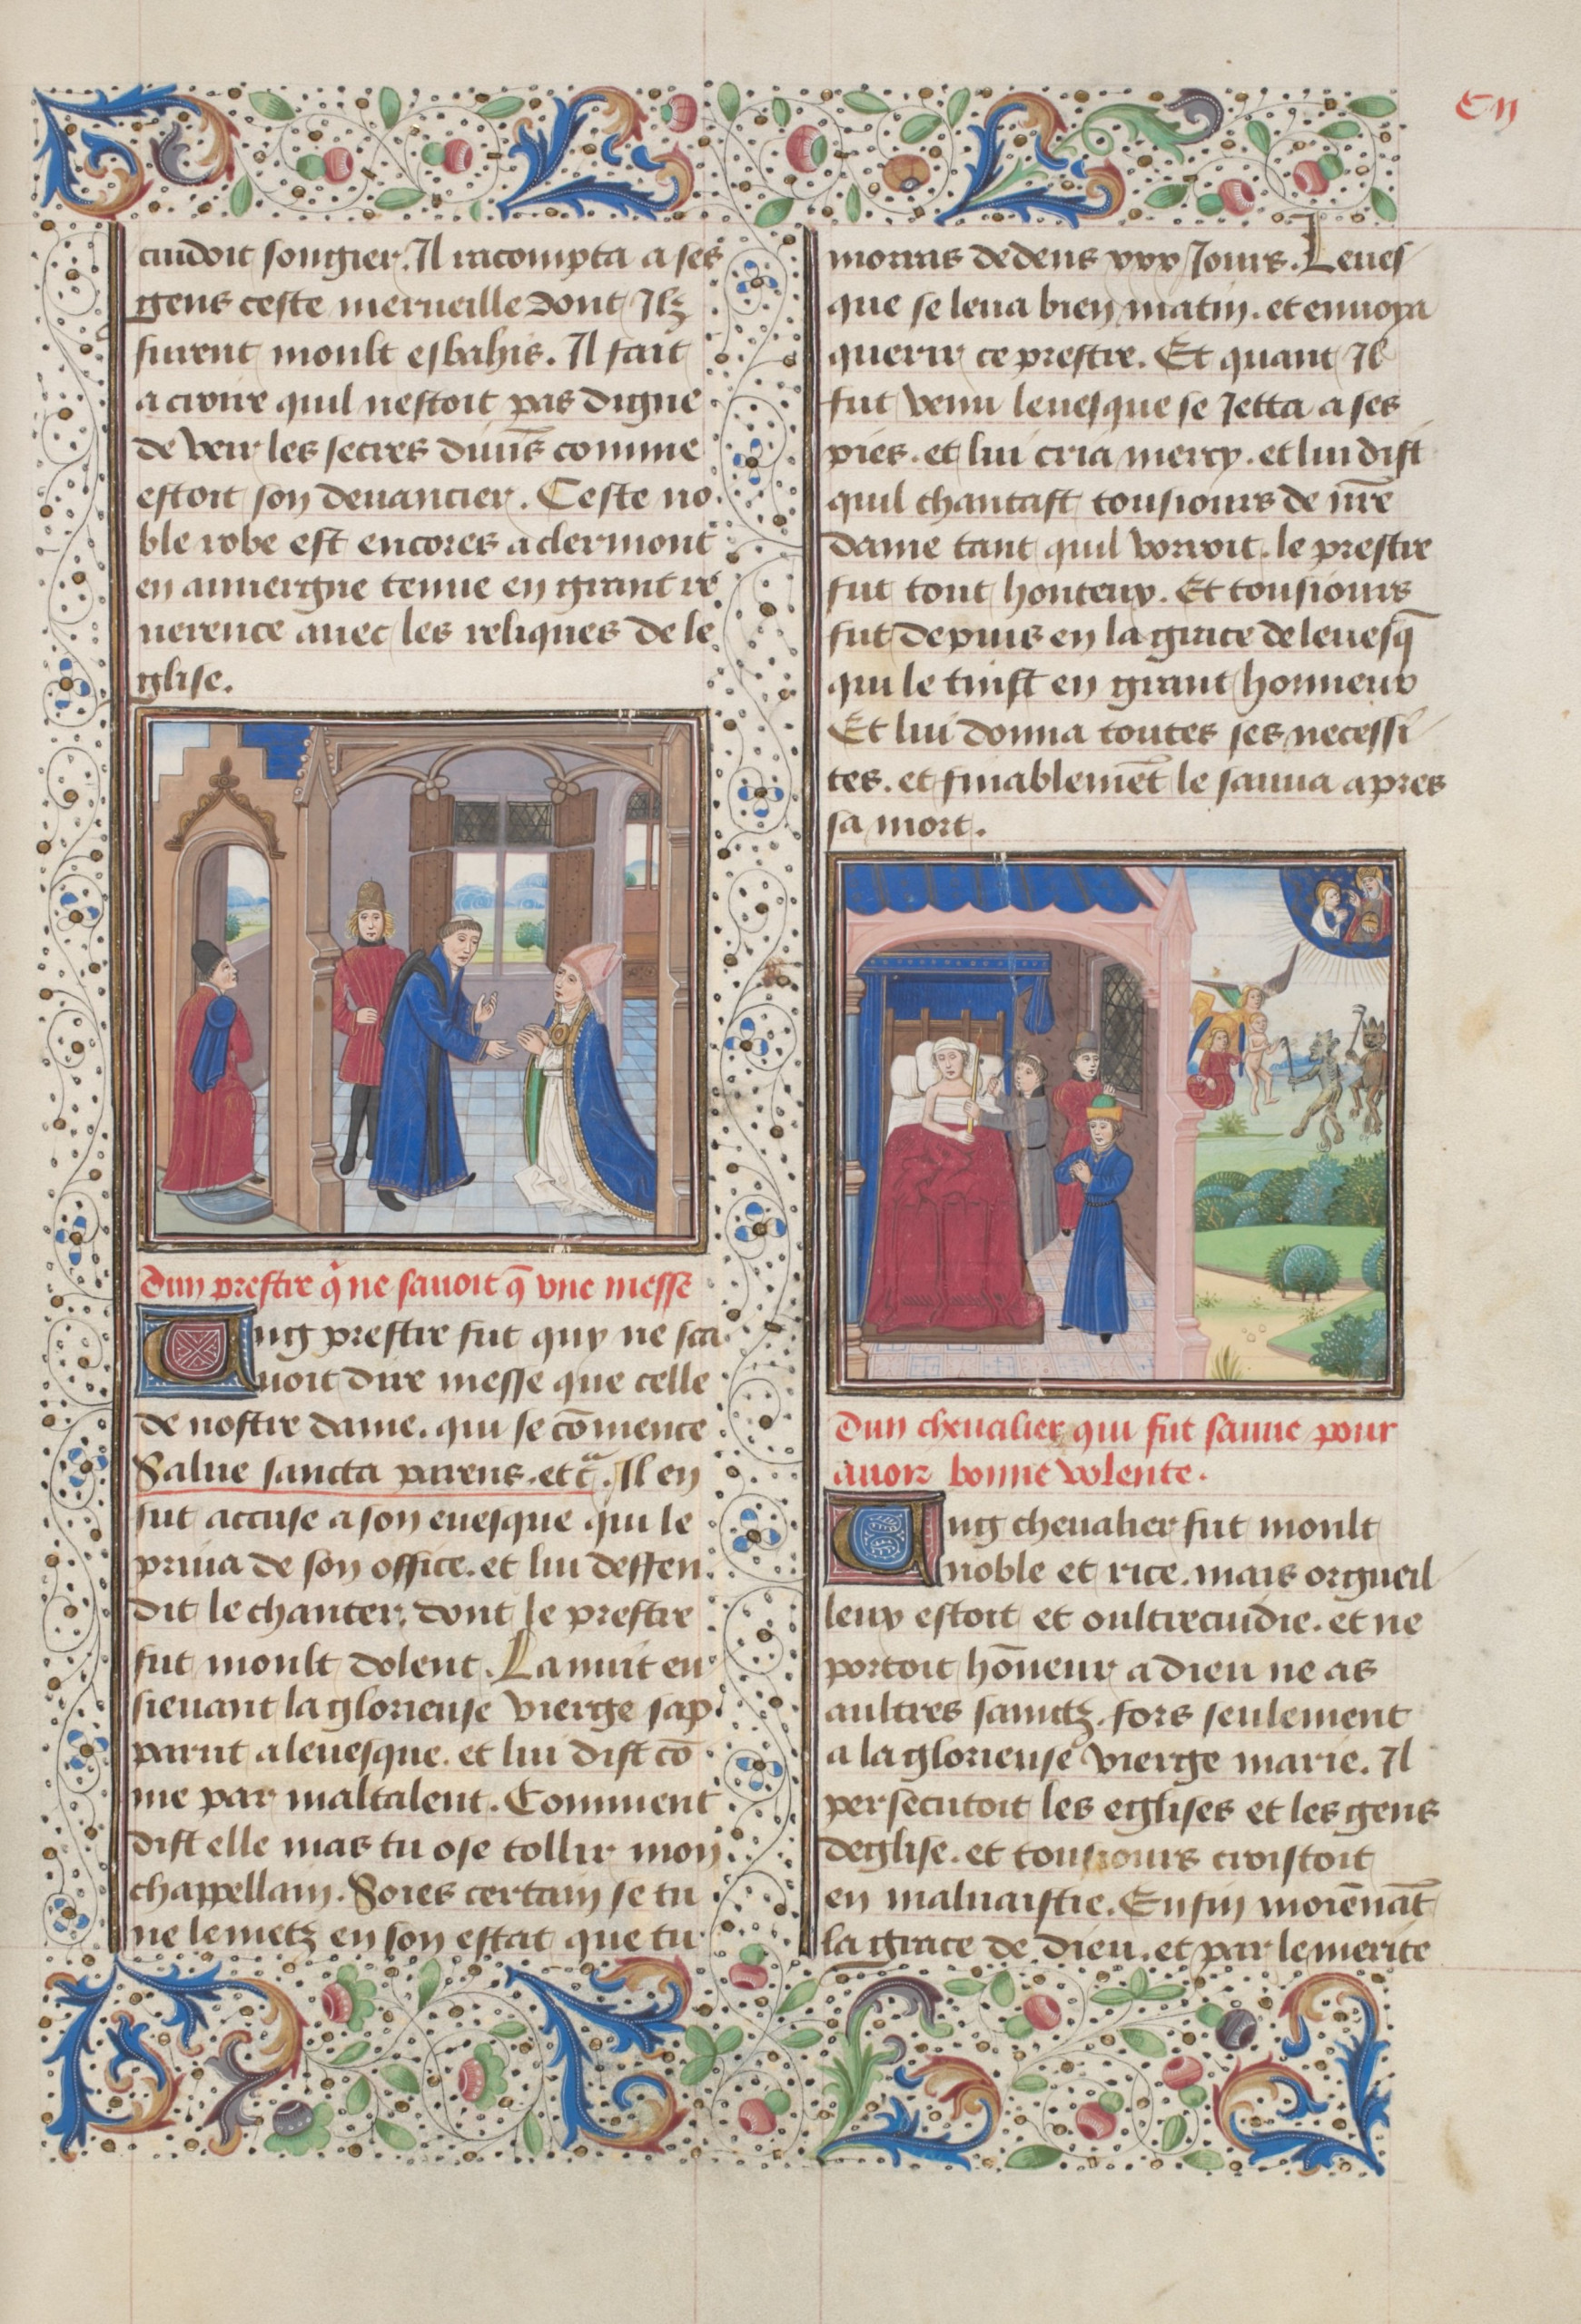 Cij
cuidoit songier. Il racompta a ses
gens ceste merueille dont Ilz
furent moult esbahis. Il fait
a croire quil nestoit pas digne
de veir les secres diuĩs comme
estoit son deuancier. Ceste no
ble robe est encores a clermont
en auuergne tenue en grant re
uerence auec les reliques de le
glise.
Dun prestre q̃ ne sauoit q̃ vne messe
Ung prestre fut quy ne sca
uoit dire messe que celle
de nostre dame. qui se cõmence
Salue sancta parens. etc̃. Il en
fut accuse a son euesque qui le
priua de son office. et lui deffen
dit le chanter. dont le prestre
fut moult dolent. La nuit en
sieuant la glorieuse vierge sap
parut a leuesque. et lui dist cõ
me par maltalent. Comment
dist elle mas tu ose tollir mon
chappellain. Soies certain se tu
ne le metz en son estat que tu
morras dedens xxx Jours. Leues
que se leua bien matin. et enuoya
querir ce prestre. Et quant Il
fut venu leuesque se Jetta a ses
pies. et lui cria mercy. et lui dist
quil chantast tousiours de nr̃e
dame tant quil vorroit. le prestre
fut tout honteux. Et tousiours
fut depuis en la grace de leuesq̃
qui le tinst en grant honneur
Et lui donna toutes ses necessi
tes. et finablemẽt le sauua apres
sa mort.
Dun cheualier qui fut sauue pour
auoir bonne volente.
Ung cheualier fut moult
noble et rice. mais orgueil
leux estoit et oultrecuidie. et ne
portoit hõneur a dieu ne as
aultres sainctz. fors seulement
a la glorieuse vierge marie. Il
persecutoit les eglises et les gens
deglise. et tousiours croistoit
en maluaistie. En fin moiẽnãt
la grace de dieu. et par le merite